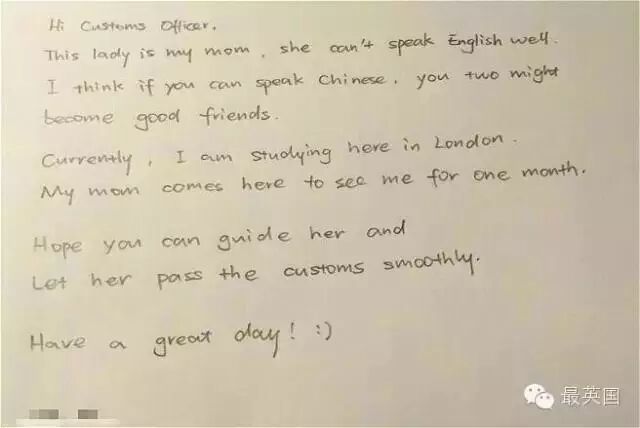 Hi Customs Officer.
This lady is my mom, she can't speak English well.
I think if you can speak Chinese, you two might
become good friends.
Currently, I am studying here in London.
My mom comes here to see me for one month.
Hope you can guide her and
Let her pass the customs smoothly.
Have a great day! :)
最英国